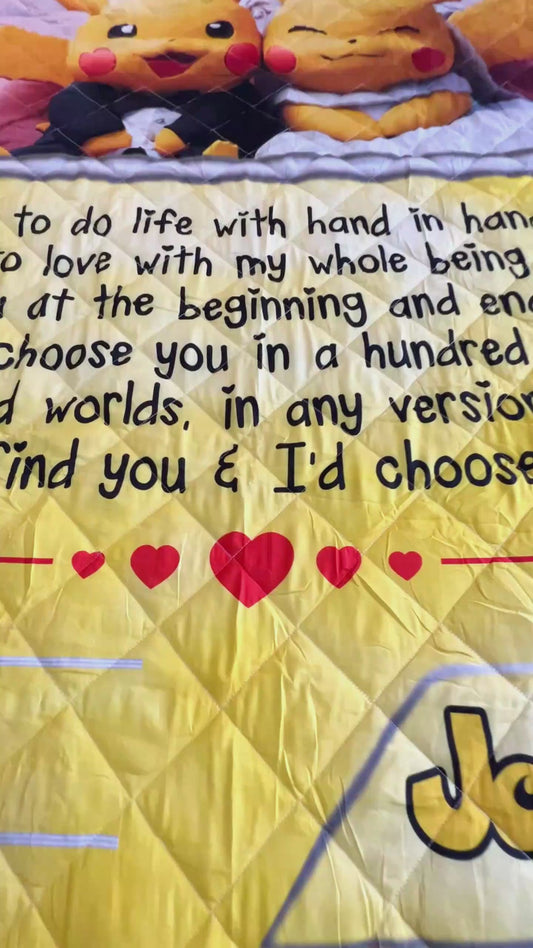 to do life with hand in han
to love with my whole being
at the beginning and en
choose you in a hundred
d worlds, in any version
find you & I'd choose
Jo